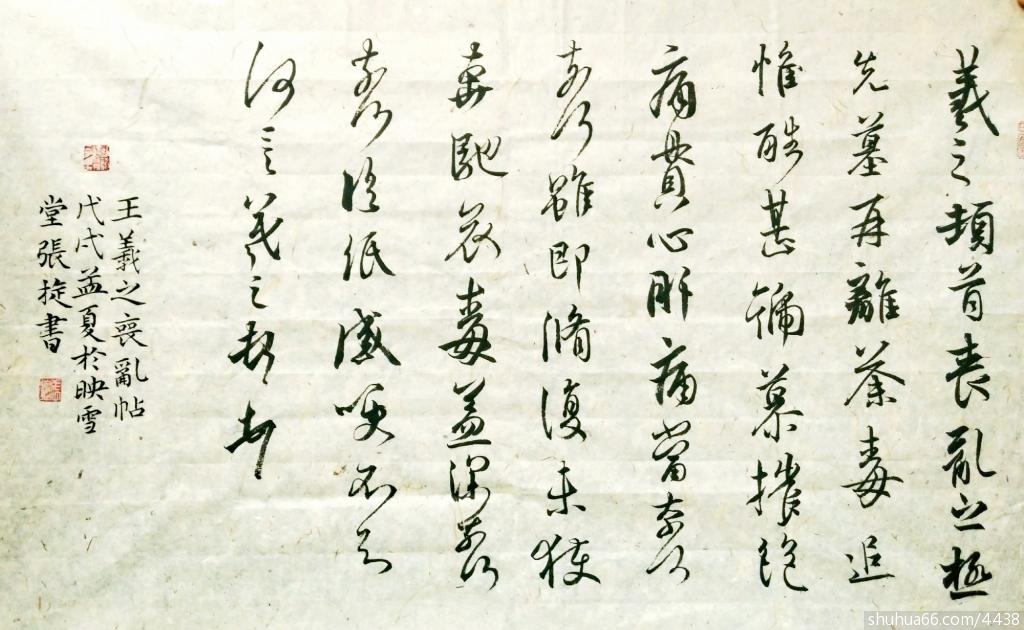 羲之頓首喪亂之極
先墓再離荼毒追
惟酷甚號慕摧絕
痛貫心肝痛當奈何
奈何雖即脩復未獲
奔馳哀毒益深奈何
奈何臨紙感哽不知
何言羲之頓首頓首
王羲之喪亂帖
戊戌孟夏於映雪
堂張旋書
shuhua66.com/4438